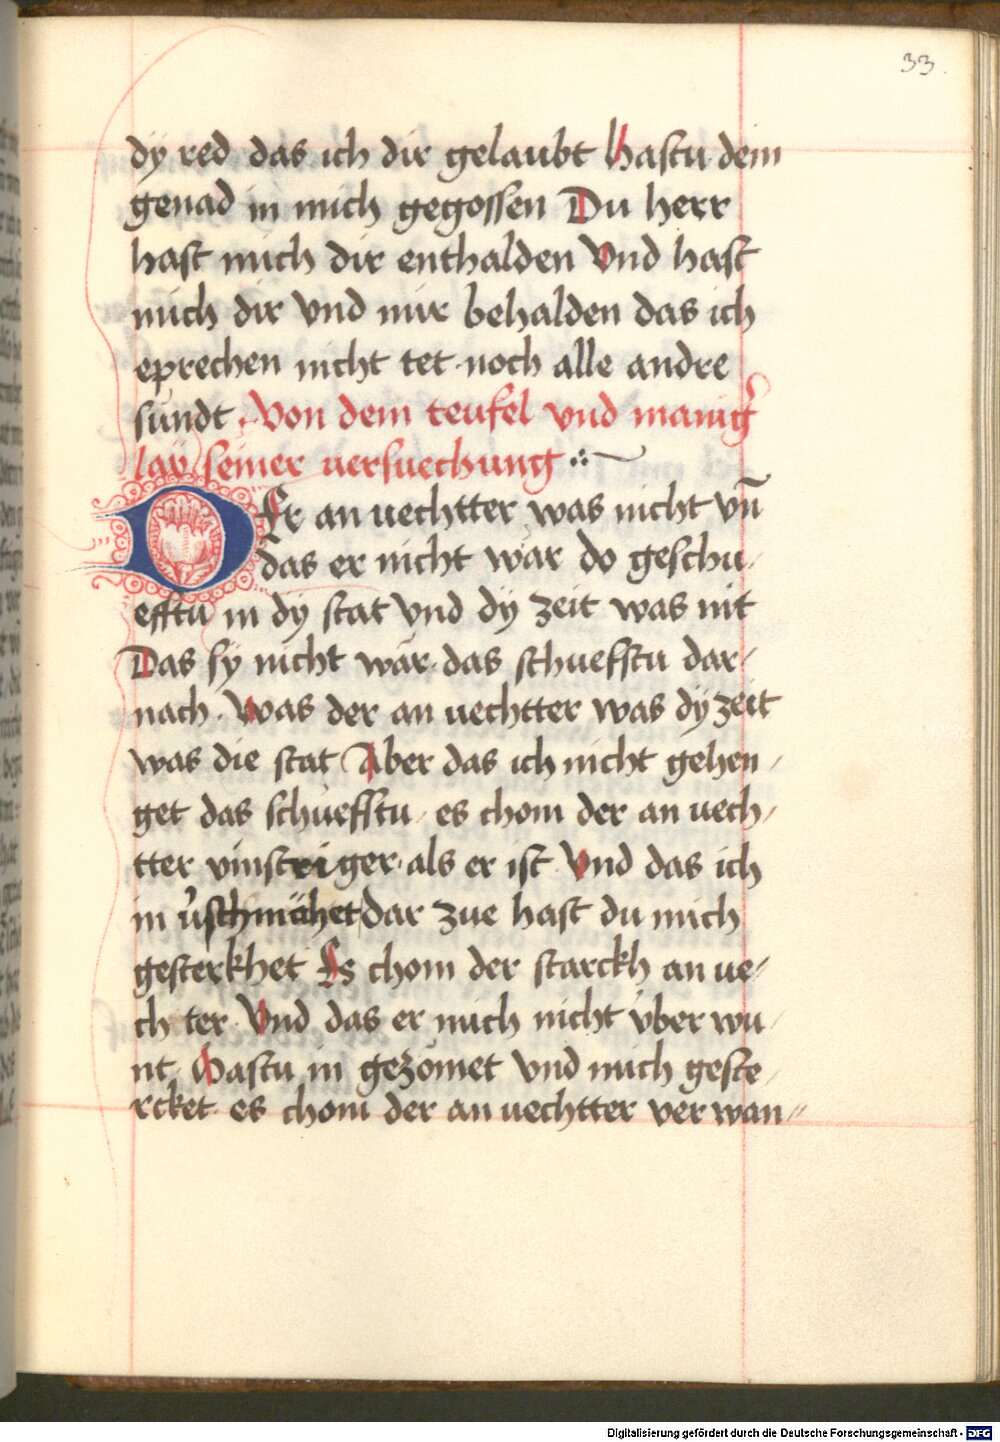 33.
dÿ red das ich dir gelaubt hastu dem
genad in mich gegossen Du herr
hast mich dir enthalden Vnd hast
mich dir vnd mir behalden das ich
eprechen nicht tet · noch alle andre
sundt · Von dem teufel vnd manig̉
laÿ seiner uersuechung
DEr an uechtter was nicht vn̄
das er nicht wär do geschu-
efftu in dÿ stat vnd dÿ zeit was nit
Das sÿ nicht wär · das schuefstu dar-
nach · Was der an uechtter was dÿ zeit
was die stat Aber das ich nicht gehen-
get das schuefftu · es chom der an uech-
tter vinstriger · als er ist Vnd das ich
in v̉schmähet dar zue hast du mich
gesterkhet Es chom der starckh an ue-
ch ter · Vnd das er mich nicht vber wu-
nt · Hastu in gezömet vnd mich geste-
rcket · es chom der an uechtter ver wan-
Digitalisierung gefördert durch die Deutsche Forschungsgemeinschaft - DFG